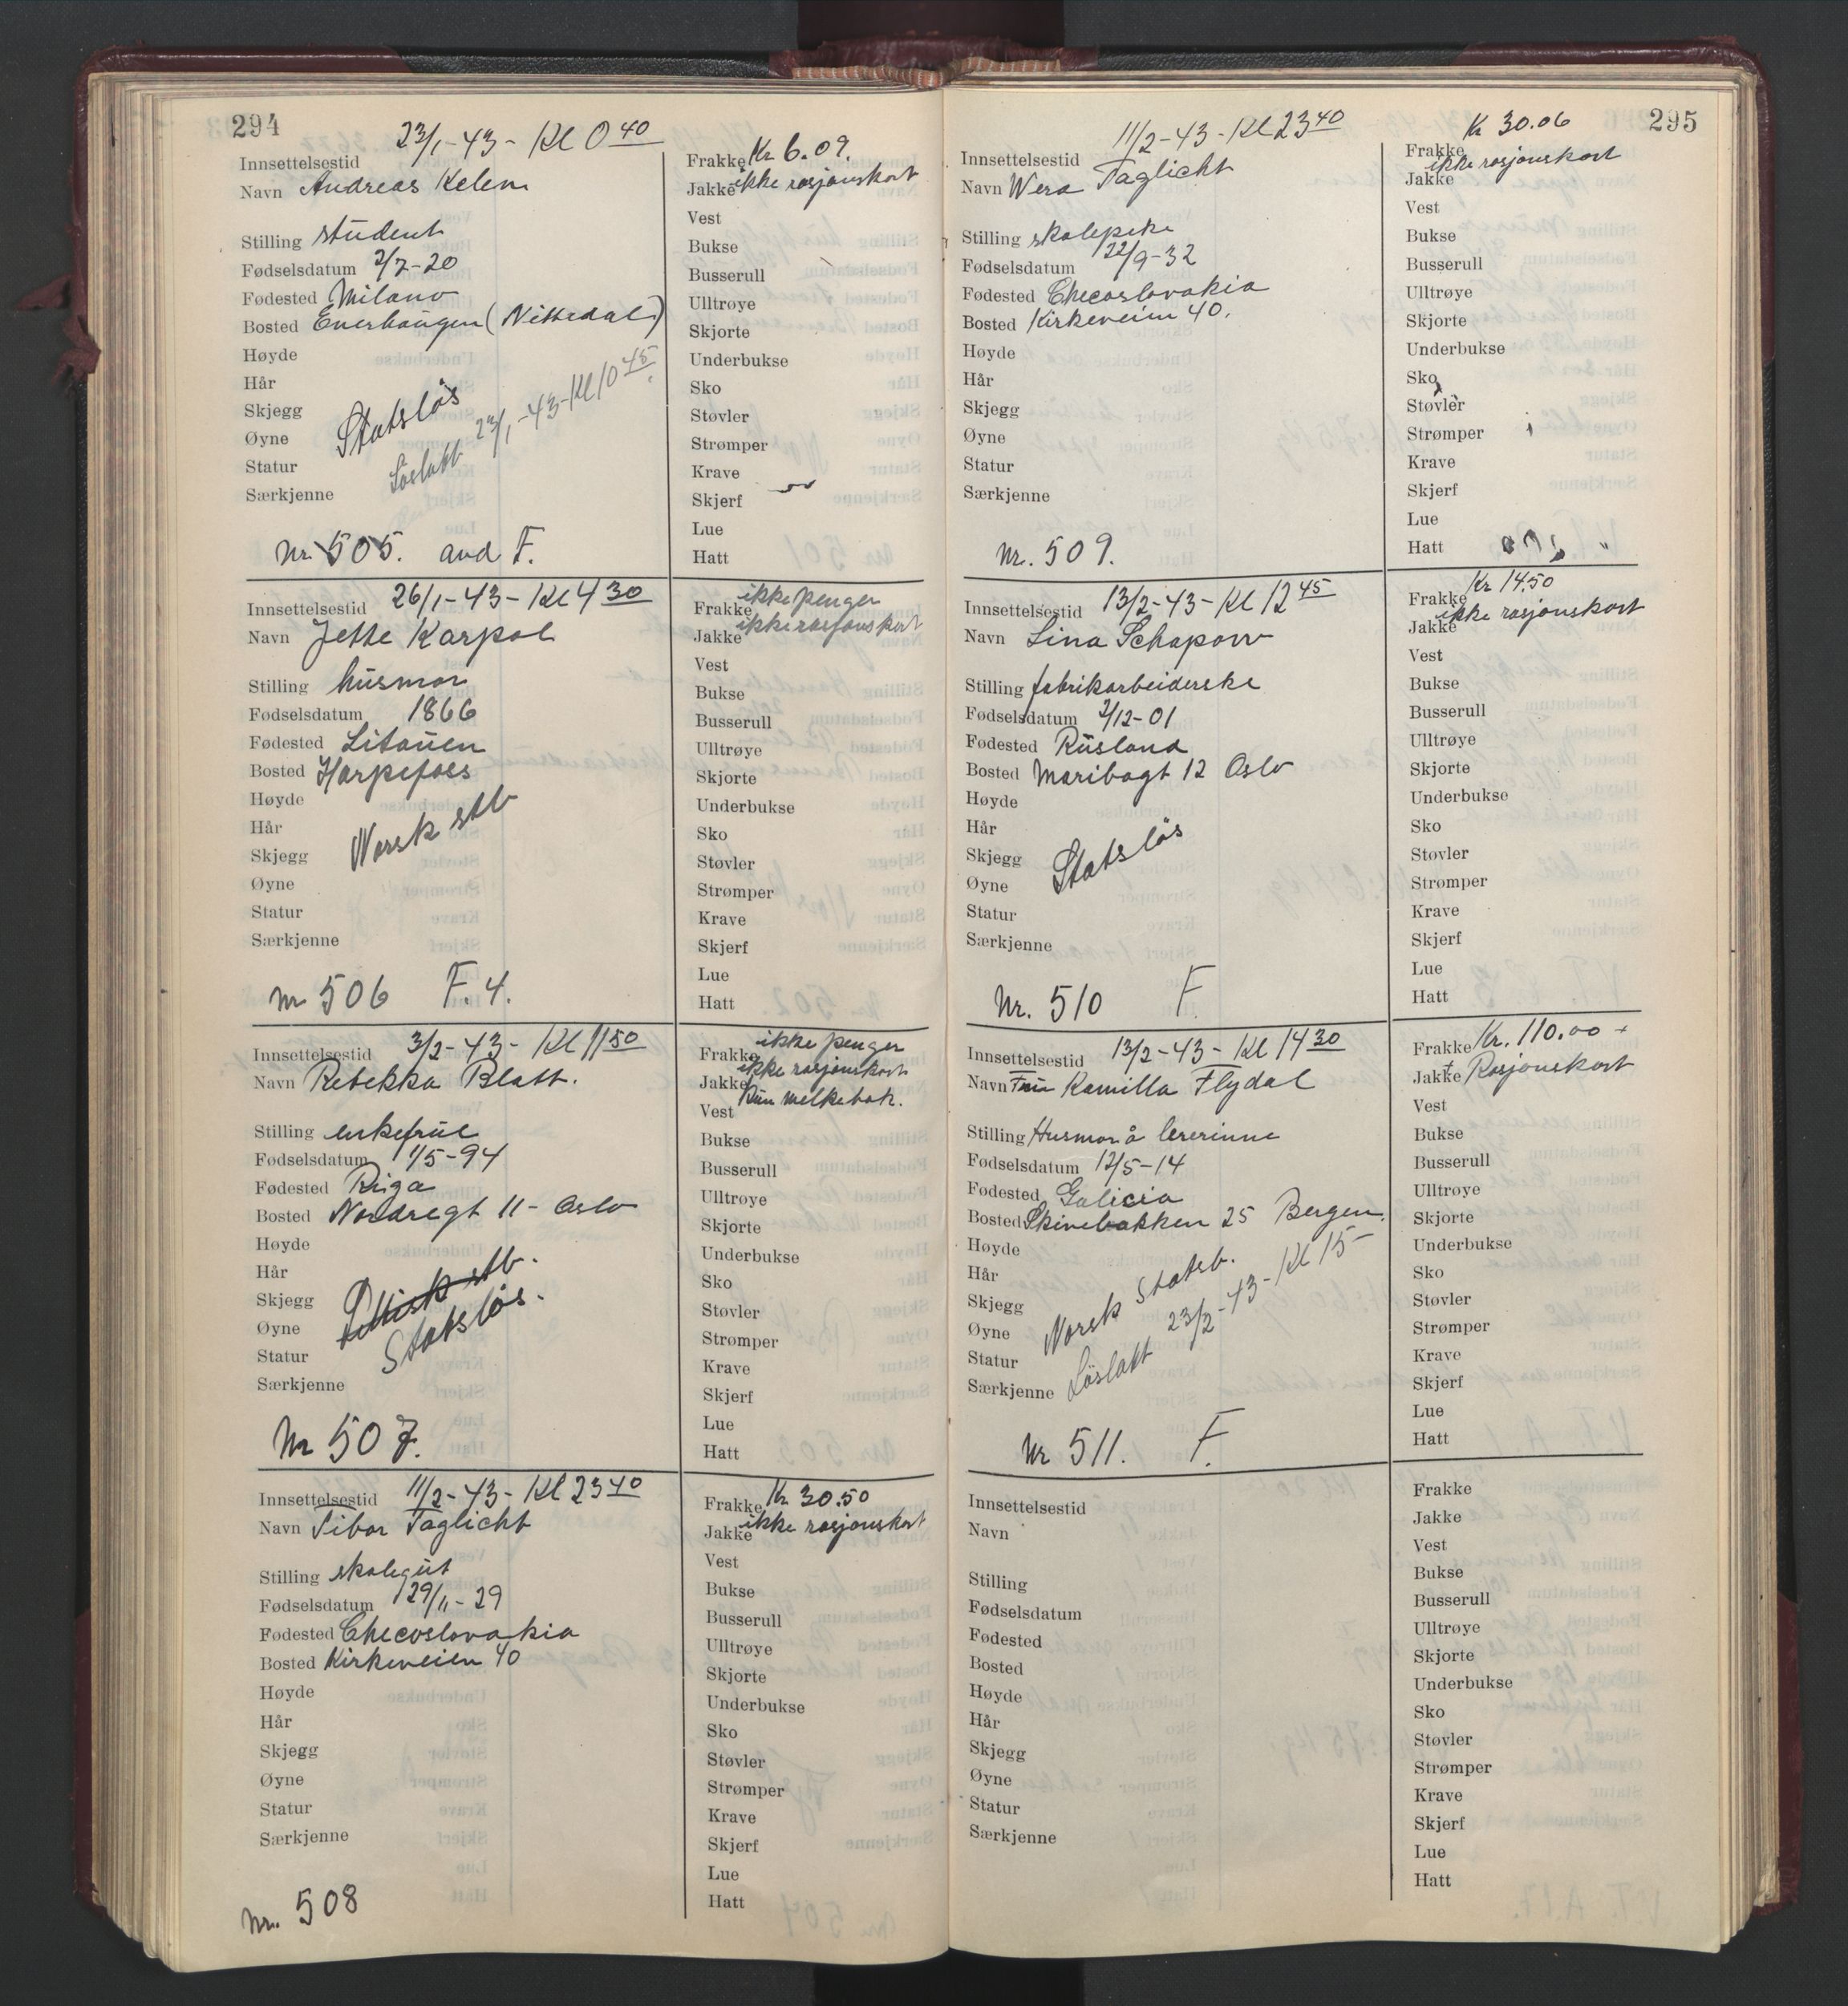 294
Innsettelsestid 23/1-43- Kl 0 40
Navn Andreas Kelen
Stilling student
Fødselsdatum 2/7-20
Fødested Milano
Bosted Enerhaugen (Nittedal)
Høyde
Hår
Skjegg Statsløs
Øyne Löslatt 23/1-43-Kl 10 45
Statur
Særkjenne
Nr. 505. and F.
Frakke Kr 6.09.
Jakke ikke rasjonskort
Vest
Bukse
Busserull
Ulltrøye
Skjorte
Underbukse
Sko
Støvler
Strømper
Krave
Skjerf
Lue
Hatt
Innsettelsestid 26/1-43- Kl 4 30
Navn Jette Karpol
Stilling husmor
Fødselsdatum 1866
Fødested Litauen
Bosted Harpefoss
Høyde
Hår
Skjegg Norsk stb
Øyne
Statur
Særkjenne
Nr 506 F. 4.
Frakke ikke penger
Jakke ikke rasjonskort
Vest
Bukse
Busserull
Ulltrøye
Skjorte
Underbukse
Sko
Støvler
Strømper
Krave
Skjerf
Lue
Hatt
Innsettelsestid 3/2-43- Kl 11 50
Navn Rebekka Blatt.
Stilling enkefrue
Fødselsdatum 1/5-94
Fødested Riga
Bosted Nordregt 11- Oslo
Høyde
Hår
Skjegg stb.
Øyne Statsløs.
Statur
Særkjenne
Nr 507.
Frakke ikke penger
Jakke ikke rasjonskort
Vest Kun melkebok.
Bukse
Busserull
Ulltrøye
Skjorte
Underbukse
Sko
Støvler
Strømper
Krave
Skjerf
Lue
Hatt
Innsettelsestid 11/2-43- Kl 23 40
Navn Tibor Taglicht
Stilling skolegut
Fødselsdatum 29/11-29
Fødested Checoslovakia
Bosted Kirkeveien 40
Høyde
Hår
Skjegg
Øyne
Statur
Særkjenne
Nr. 508
Frakke Kr 30.50
Jakke ikke rasjonskort
Vest
Bukse
Busserull
Ulltrøye
Skjorte
Underbukse
Sko
Støvler
Strømper
Krave
Skjerf
Lue
Hatt
295
Innsettelsestid 11/2-43- Kl 23 40
Navn Wera Taglicht
Stilling skolepike
Fødselsdatum 22/9-32
Fødested Checoslovakia
Bosted Kirkeveien 40.
Høyde
Hår
Skjegg
Øyne
Statur
Særkjenne
Nr. 509.
Kr 30.06
Frakke ikke rasjonskort
Jakke
Vest
Bukse
Busserull
Ulltrøye
Skjorte
Underbukse
Sko
Støvler
Strømper
Krave
Skjerf
Lue
Hatt
Innsettelsestid 13/2-43- Kl 12 45
Navn Lina Schapow
Stilling fabrikarbeiderske
Fødselsdatum 2/12-01
Fødested Rusland
Bosted Maribogt 12 Oslo
Høyde
Hår
Skjegg Statsløs
Øyne
Statur
Særkjenne
Nr. 510 F
Frakke Kr 14.50
Jakke ikke rasjonskort
Vest
Bukse
Busserull
Ulltrøye
Skjorte
Underbukse
Sko
Støvler
Strømper
Krave
Skjerf
Lue
Hatt
Innsettelsestid 13/2-43- Kl 14 30
Navn Fru Kamilla Flydal
Stilling Husmor å lererinne
Fødselsdatum 12/5-14
Fødested Galicia
Bosted Skivebakken 25 Bergen.
Høyde
Hår
Skjegg Norsk Statsb.
Øyne
Statur Löslatt 23/2-43- Kl 15-
Særkjenne
Nr 511. F.
Frakke Kr. 110.00 +
Jakke + Rasjonskort
Vest
Bukse
Busserull
Ulltrøye
Skjorte
Underbukse
Sko
Støvler
Strømper
Krave
Skjerf
Lue
Hatt
Innsettelsestid
Navn
Stilling
Fødselsdatum
Fødested
Bosted
Høyde
Hår
Skjegg
Øyne
Statur
Særkjenne
Frakke
Jakke
Vest
Bukse
Busserull
Ulltrøye
Skjorte
Underbukse
Sko
Støvler
Strømper
Krave
Skjerf
Lue
Hatt